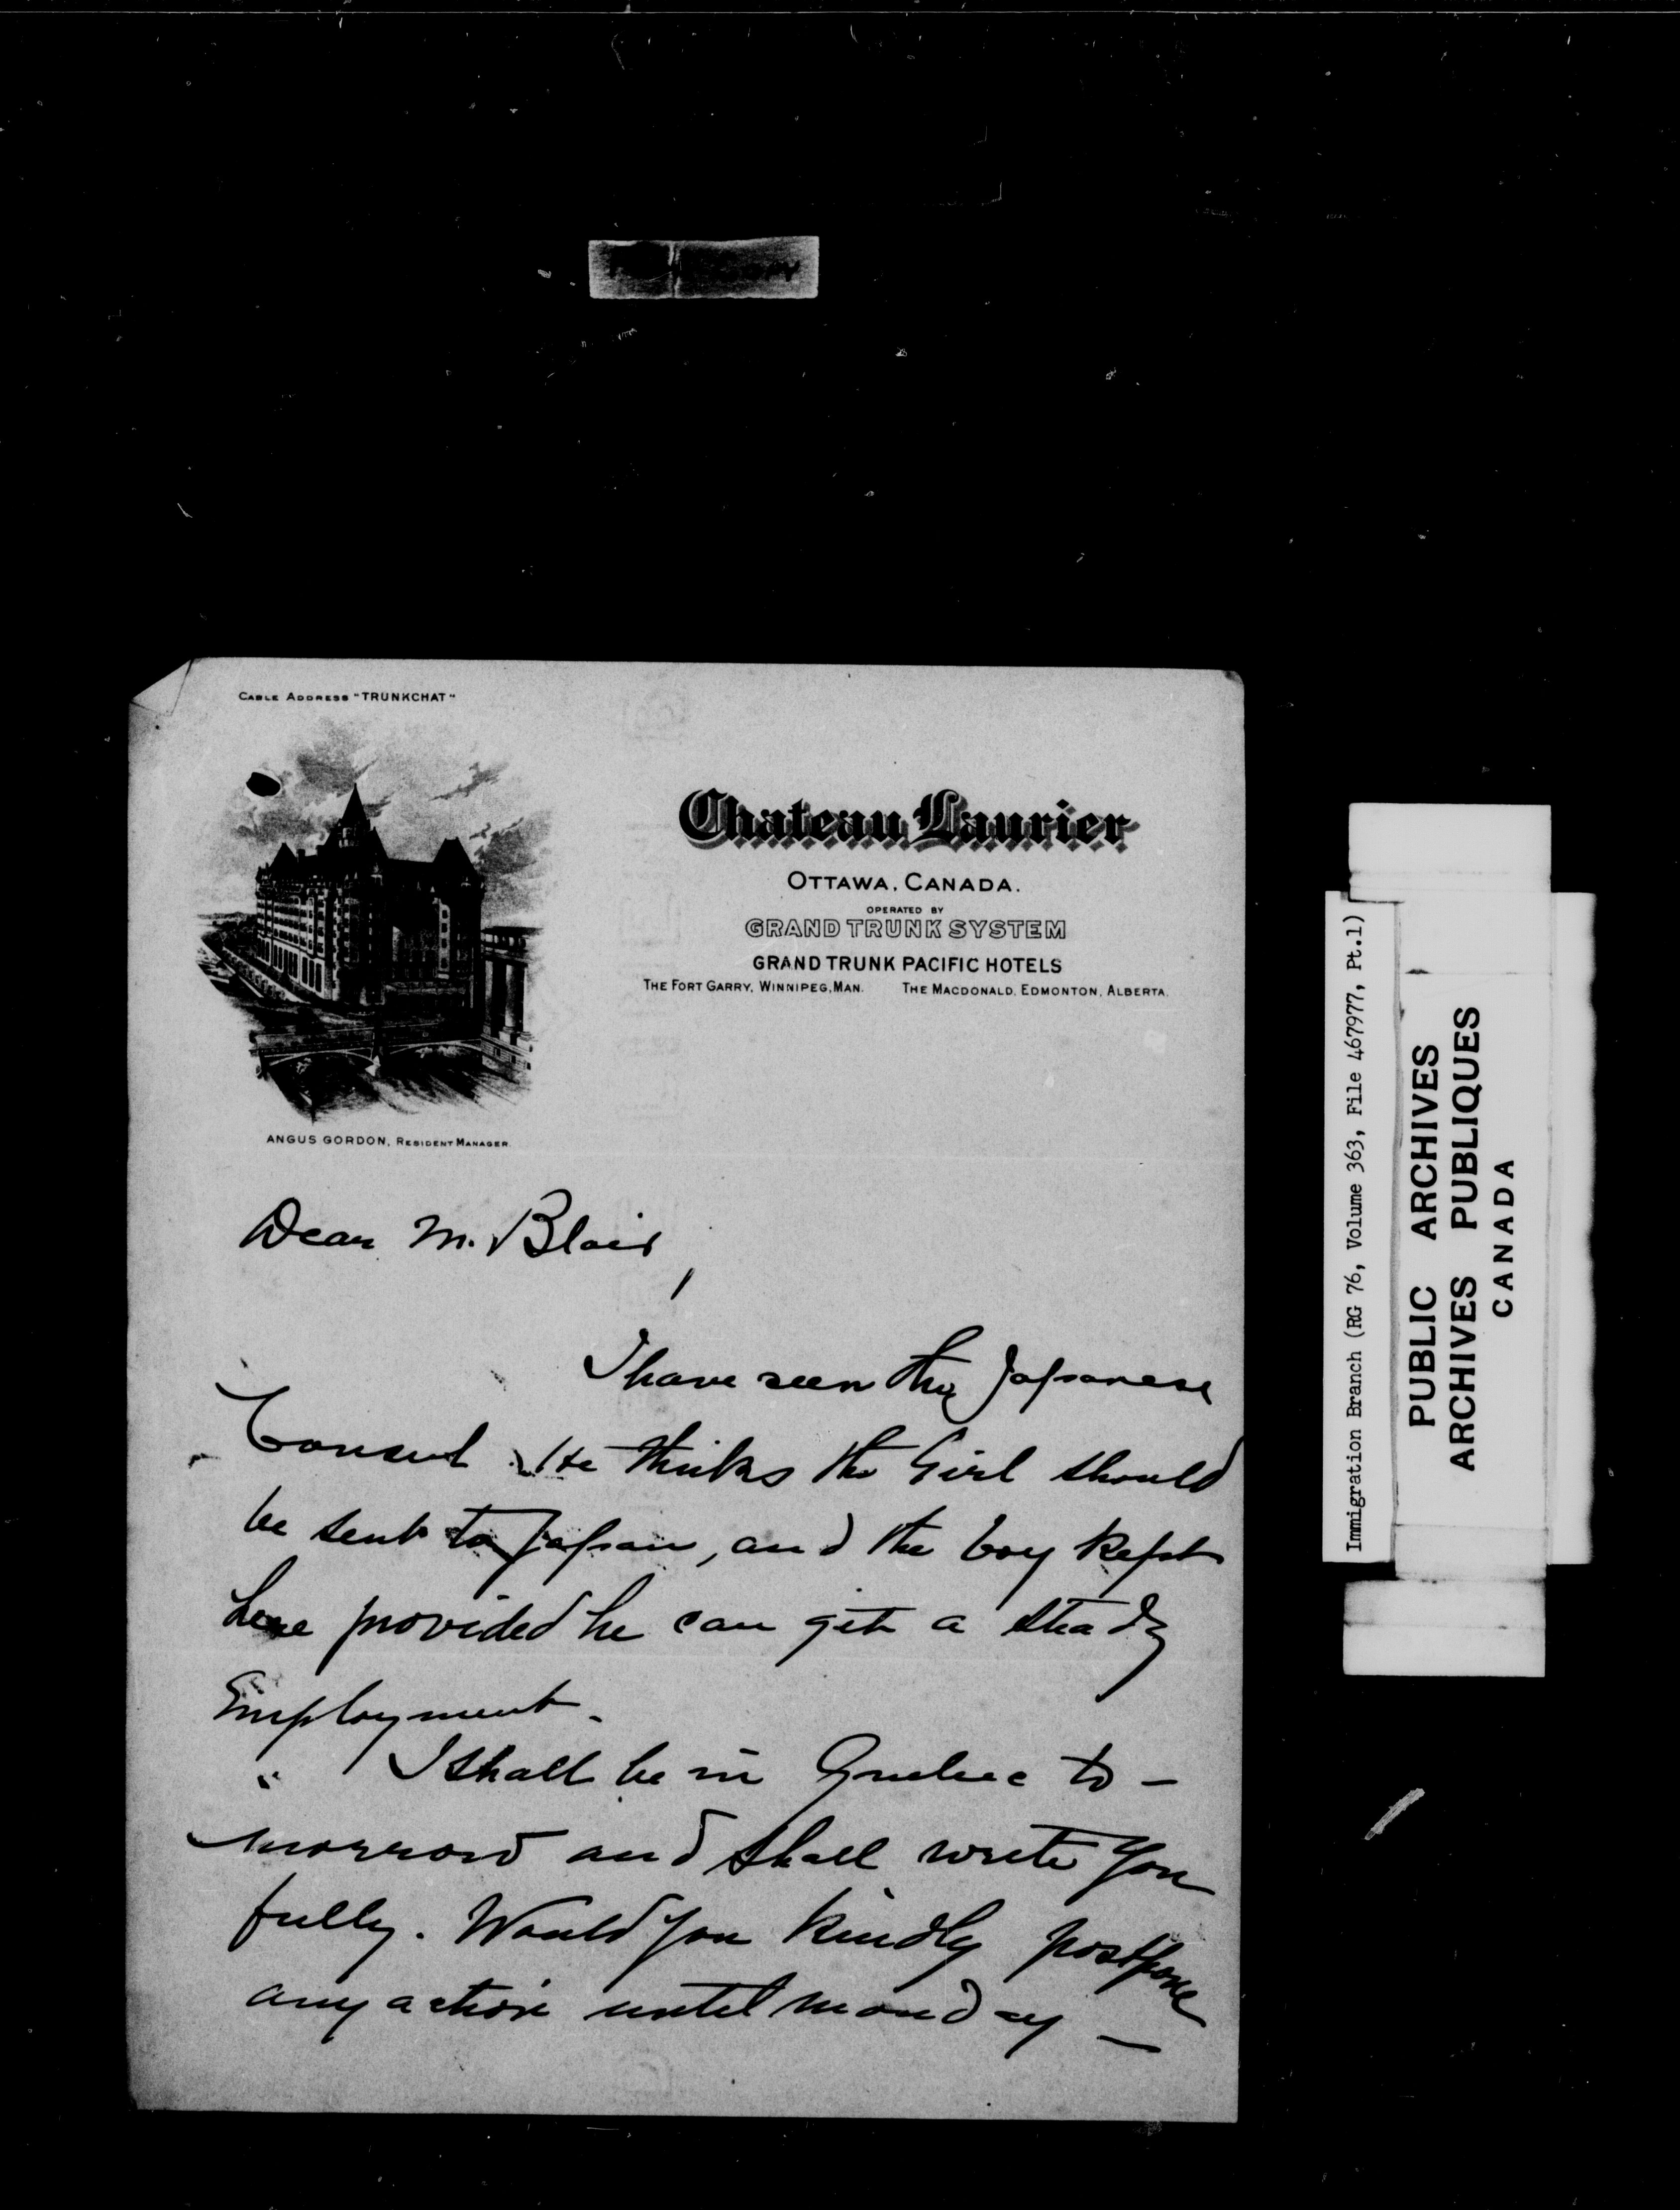 COPY
CABLE ADDRESS "TRUNKCHAT"
Chateau Laurier
OTTAWA, CANADA.
OPERATED BY
GRAND TRUNK SYSTEM
GRAND TRUNK PACIFIC HOTELS
THE FORT GARRY, WINNIPEG, MAN. THE MACDONALD, EDMONTON, ALBERTA.
ANGUS GORDON, RESIDENT MANAGER.
Dear M. Blair,
I have seen the Japanese
Consul. He thinks the Girl should
be sent to Japan, and the boy kept
here provided he can get a steady
Employment.
I shall be in Quebec to-
morrow and shall write you
fully. Would you kindly postpone
any action until monday —
Immigration Branch (RG 76, Volume 363, File 467977, Pt.1)
PUBLIC ARCHIVES
ARCHIVES PUBLIQUES
CANADA